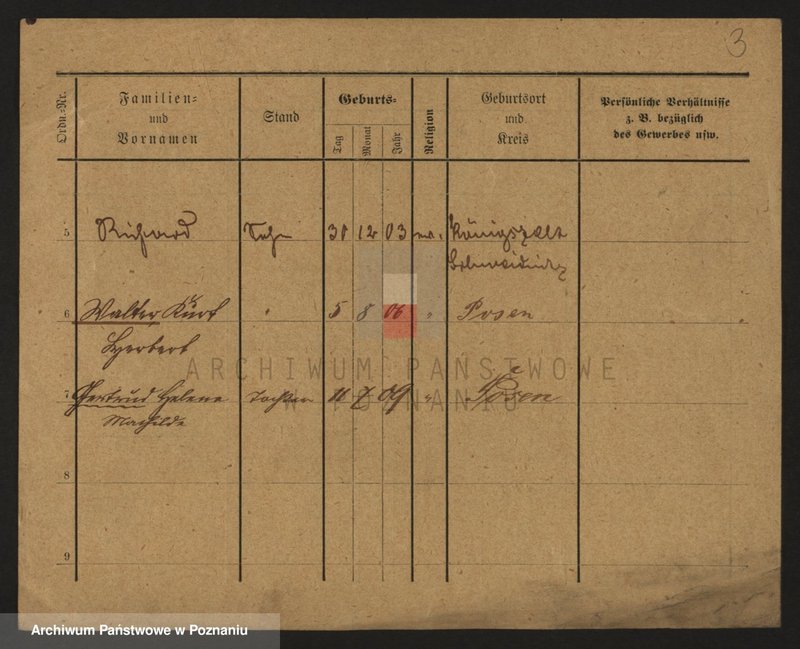 3
Ordn.-Nr.
Familien-
und
Vornamen
Stand
Geburts-
Tag
Monat
Jahr
Religion
Geburtsort
und
Kreis
Persönliche Verhältnisse
z. B. bezüglich
des Gewerbes usw.
5 Richard Sohn 30 12 03 ev. Königszelt
Schweidnitz
6 Walter Kurt " 5 8 06 " Posen
Herbert
7 Gertrud Helene Tochter 11 7 09 " Posen
Mathilde
8
9
ARCHIWUM PAŃSTWOWE
W POZNANIU
Archiwum Państwowe w Poznaniu